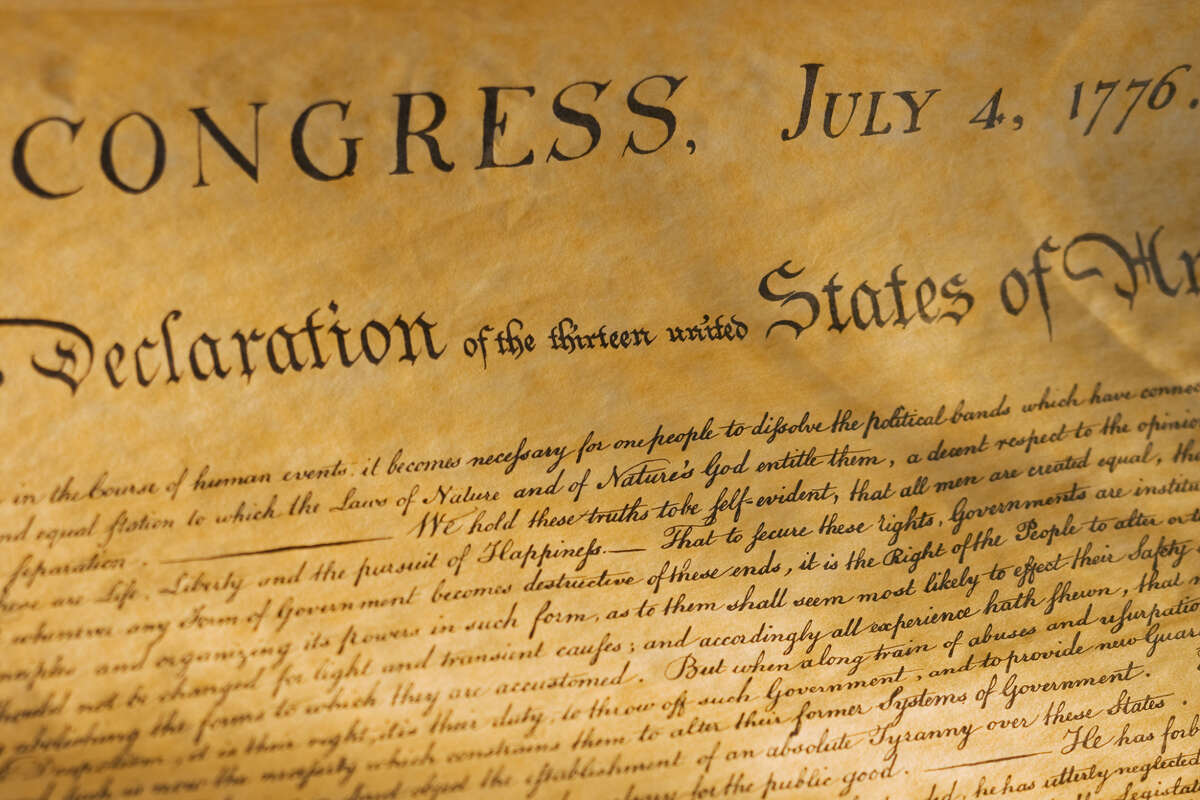 CONGRESS, JULY 4, 1776.
Declaration of the thirteen united States of
in the Course of human events, it becomes necessary for one people to dissolve the political bands which have
equal station to which the Laws of Nature and of Nature's God entitle them, a decent respect to the
separation. We hold these truths to be self-evident, that all men are created equal,
are Life, Liberty and the pursuit of Happiness.— That to secure these rights, Governments are
whenever any Form of Government becomes destructive of these ends, it is the Right of the People to alter or to
and organizing its powers in such form, as to them shall seem most likely to effect their Safety
should not be changed for light and transient causes; and accordingly all experience hath shewn, that
abolishing the forms to which they are accustomed. But when a long train of abuses and
Despotism, it is their right, it is their duty, to throw off such Government, and to provide new
such is now the necessity which constrains them to alter their former Systems of Government.
object the establishment of an absolute Tyranny over these States.
for the public good. He has
he has utterly neglected